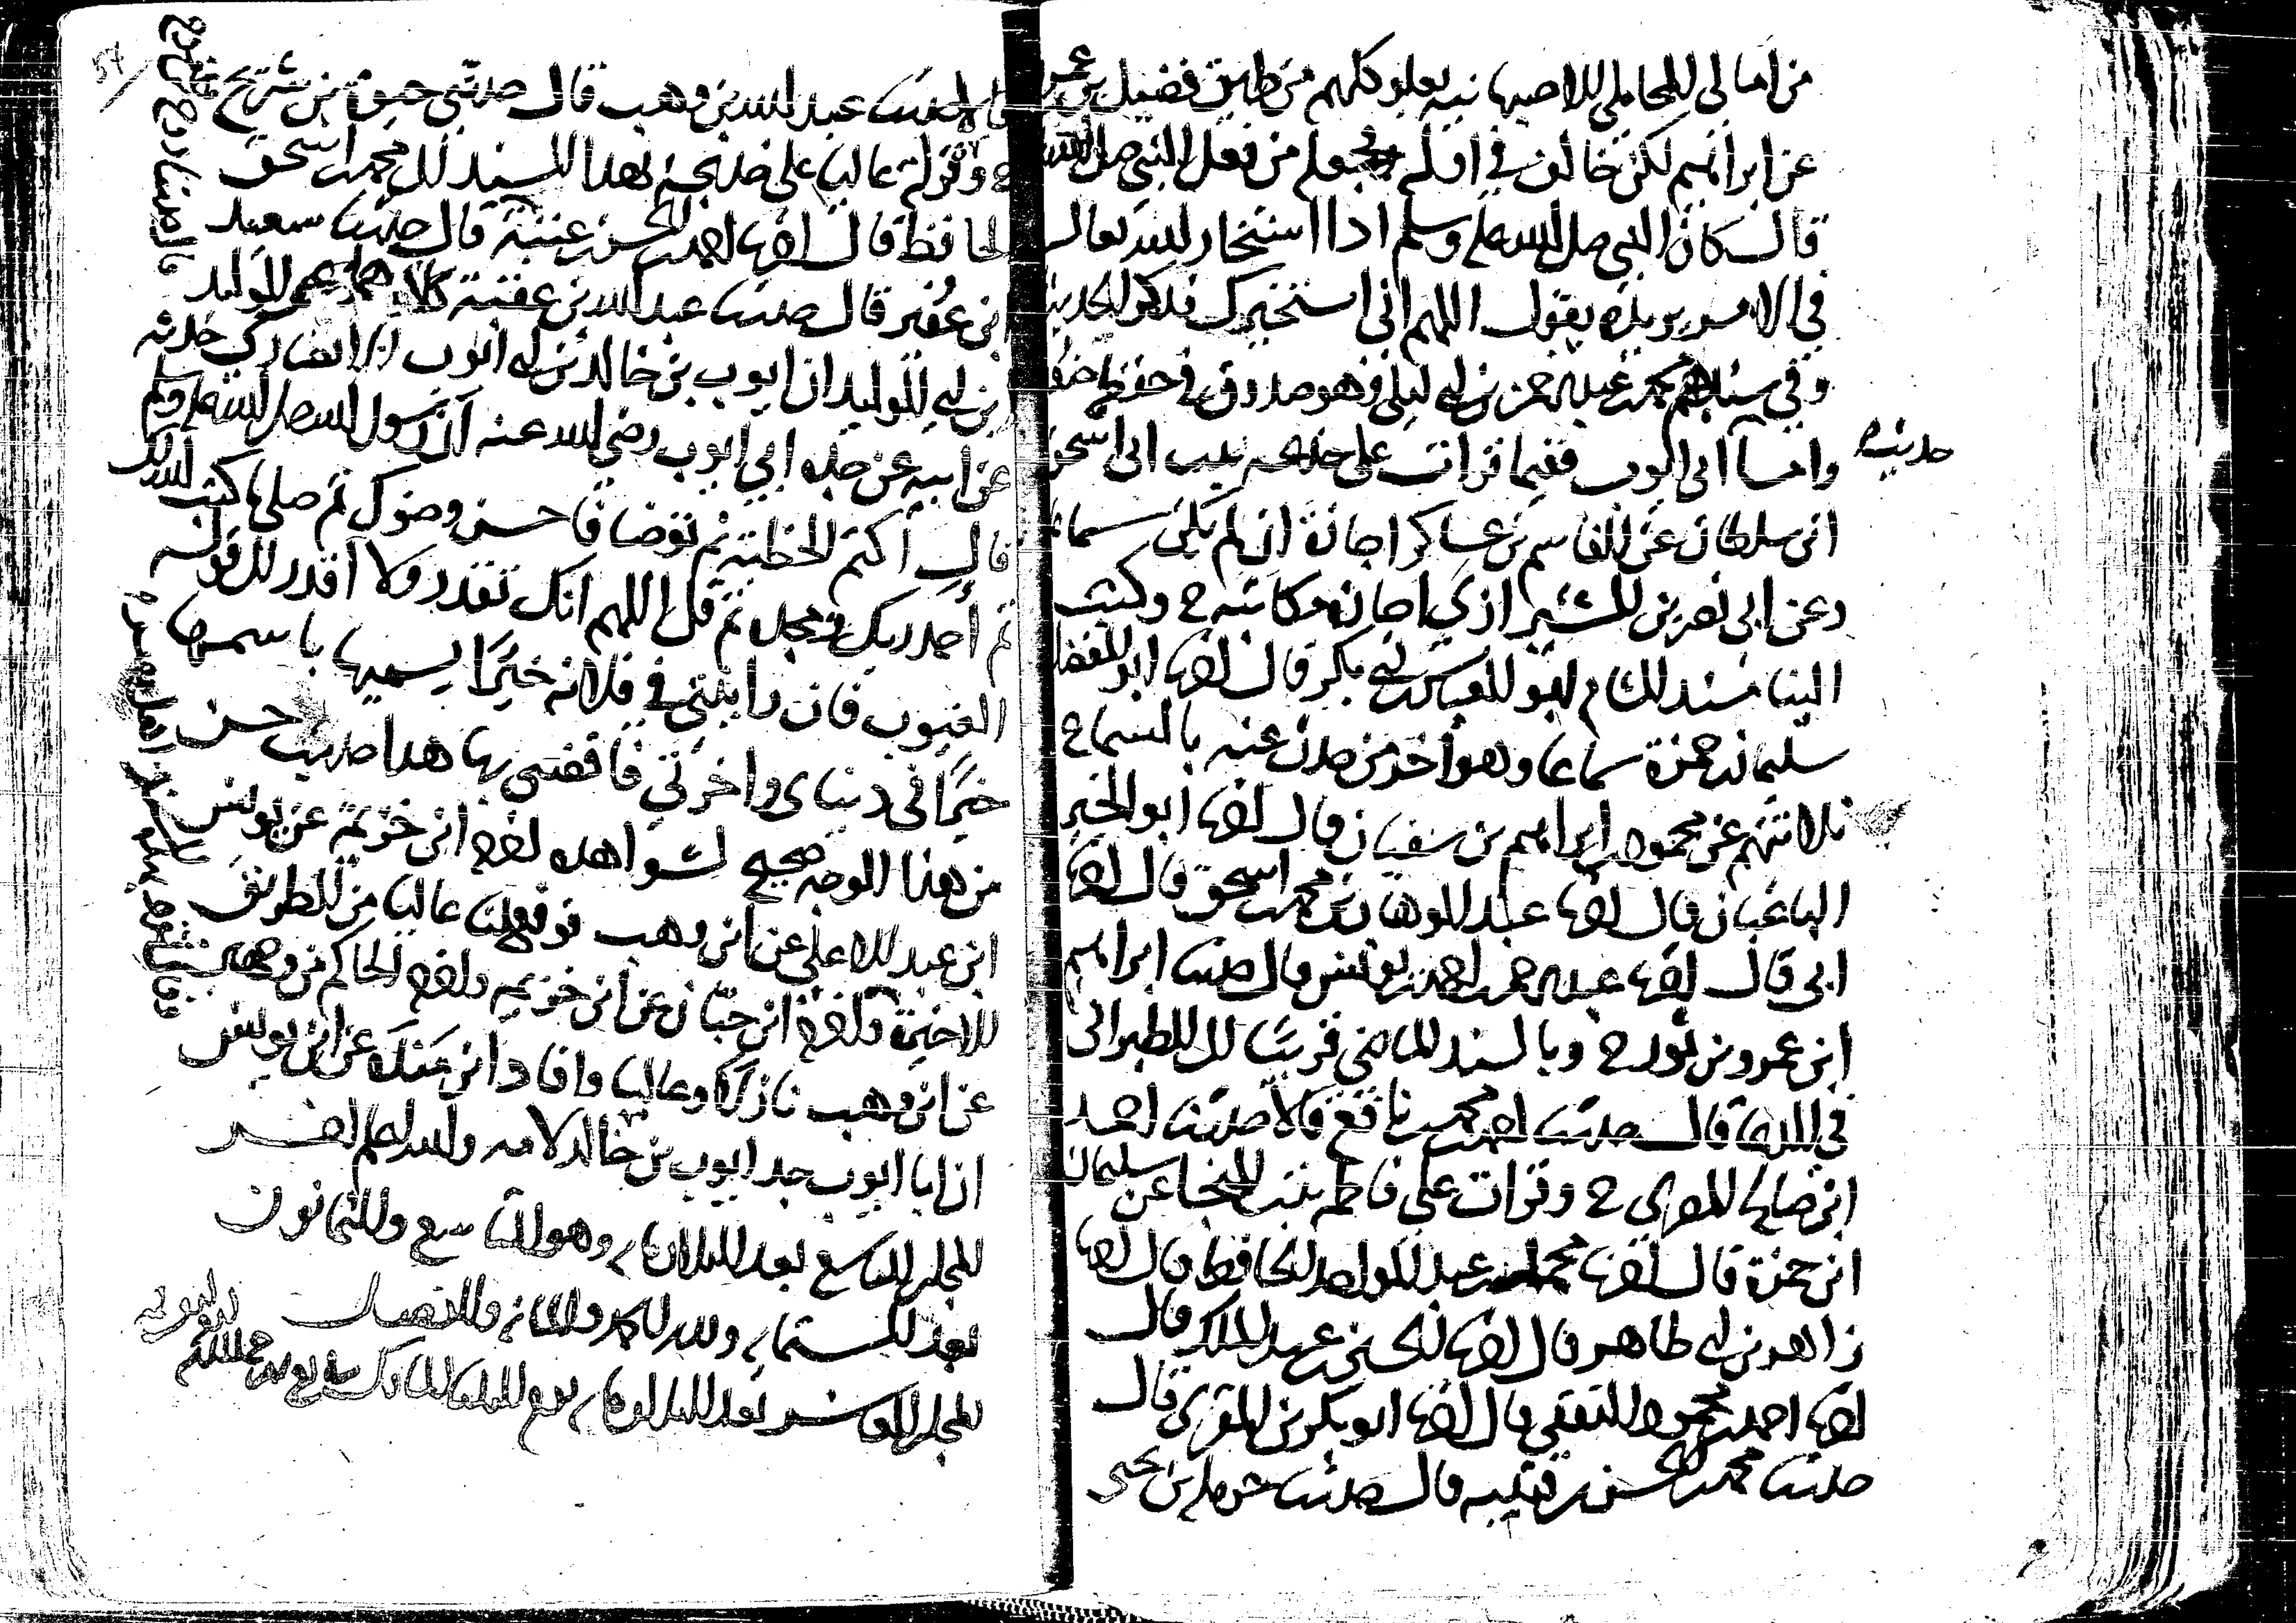 من امالي المحاملي الاصبهانية بعلو كلهم من طريق فضيل بن عمرو
عن ابراهيم لكن خالف في اوله فجعله من فعل النبي صلى الله
قال كان النبي صلى الله عليه وسلم اذا استخار الله تعالى
في الامر يريده يقول اللهم اني استخيرك فذكر الحديث
وفي سنده محمد بن عبد الرحمن بن ابي ليلى وهو صدوق في حفظه ضعف
واما ابي ايوب ففيما قرات على خديجة بنت ابي اسحق
حديث
ابن سلطان عن القاسم بن عساكر اجازة ان لم يكن سماعا
وعن ابي نصر بن الشيرازي اجازة مكاتبة ح وكتب
الينا مسند الشام ابو العباس بن ابي بكر قال اخبرنا ابو الفضل
سليمان بن حمزة سماعا وهو اخر من حدث عنه بالسماع
ثلاثتهم عن محمود بن ابراهيم بن سفيان قال اخبرنا ابو الخير
الباغبان قال اخبرنا عبد الوهاب بن محمد بن اسحق قال اخبرنا
ابي قال اخبرنا عبد الرحمن بن احمد بن يونس قال حدثنا ابراهيم
ابن عمرو بن ثور ح وبالسند الماضي قريبا الى الطبراني
في الدعاء قال حدثنا احمد بن محمد بن نافع قالا حدثنا احمد
ابن صالح المصري ح وقرات على فاطمة بنت المنجا عن سليمان
ابن حمزة قال اخبرنا محمد بن عبد الواحد الحافظ قال اخبرنا
زاهر بن ابي طاهر قال اخبرنا الحسين بن عبد الملك قال
اخبرنا احمد بن محمود الثقفي قال اخبرنا ابو بكر بن المقرئ قال
حدثنا محمد بن الحسن بن قتيبة قال حدثنا حرملة بن يحيى
قالا حدثنا عبد الله بن وهب قال حدثني حيوة بن شريح
ح وقرأته عاليا على خديجة بهذا السند الى محمد بن اسحق
الحافظ قال اخبرنا احمد بن الحسن بن عتبة قال حدثنا سعيد
ابن عفير قال حدثنا عبد الله بن عقبة كلاهما عن الوليد
بن ابي الوليد ان ايوب بن خالد بن ابي ايوب الانصاري حدثه
عن ابيه عن جده ابي ايوب رضي الله عنه ان رسول الله صلى الله عليه وسلم
قال اكتم الخطبة ثم توضا فاحسن وضوءك ثم صل ما كتب الله لك
ثم احمد ربك ومجده ثم قل اللهم انك تقدر ولا اقدر الى قوله
الغيوب فان رايت لي في فلانة خيرا يسميها باسمها
خيرا في دنياي واخرتي فاقضي بها هذا حديث حسن
من هذا الوجه صحيح لشواهده اخرجه ابن خزيمة عن يونس
ابن عبد الاعلى عن ابن وهب فوقع لنا عاليا من الطريق
الاخيرة واخرجه ابن حبان عن ابن خزيمة واخرجه الحاكم من وجهين
عن ابن وهب نازلا وعاليا وافاد ابن منده عن ابن يونس
ان ابا ايوب جد ايوب بن خالد لامه والله اعلم اخر
المجلس التاسع بعد الثلاثمائة وهو التاسع والثمانون
بعد الستمائة
المجلس العاشر بعد الثلاثمائة